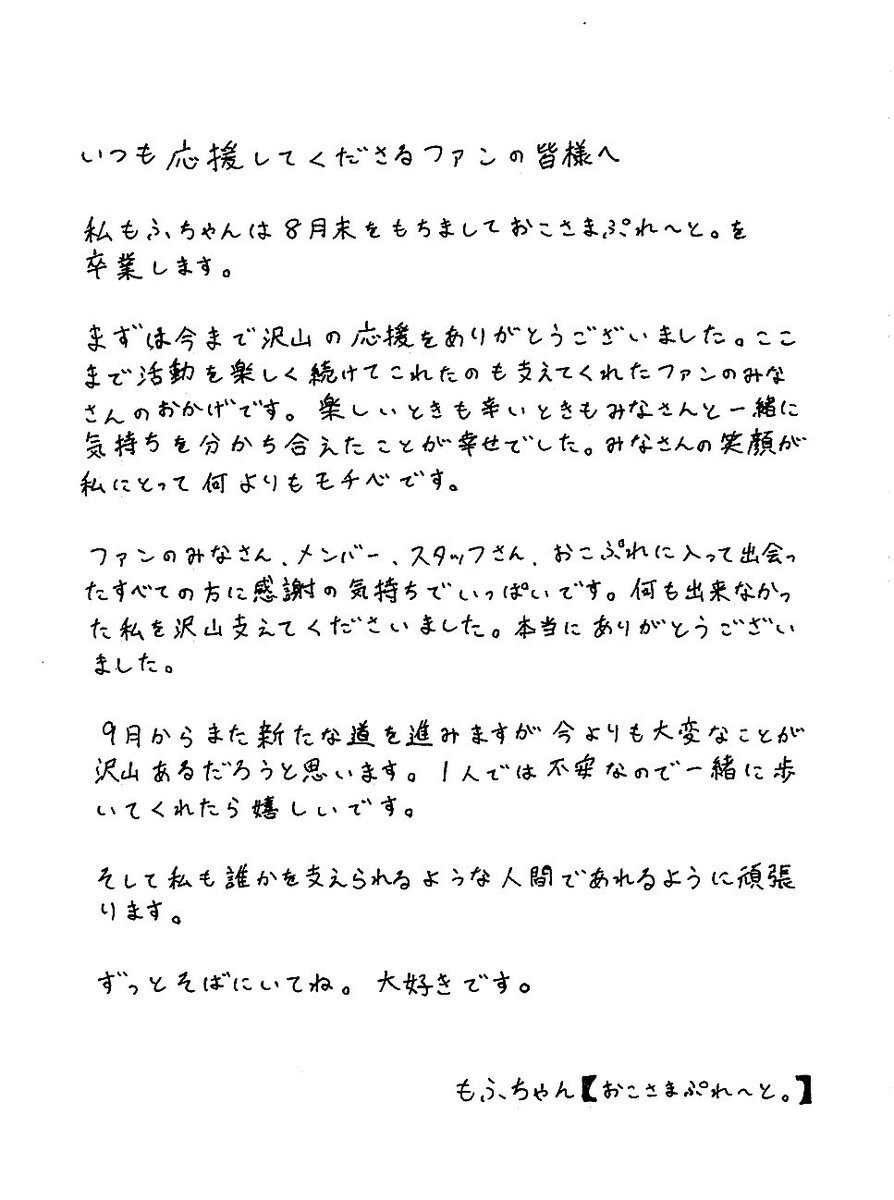 いつも応援してくださるファンの皆様へ
私もふちゃんは8月末をもちましておこさまぷれ〜と。を
卒業します。
まずは今まで沢山の応援をありがとうございました。ここ
まで活動を楽しく続けてこれたのも支えてくれたファンのみな
さんのおかげです。楽しいときも辛いときもみなさんと一緒に
気持ちを分かち合えたことが幸せでした。みなさんの笑顔が
私にとって何よりもモチベです。
ファンのみなさん、メンバー、スタッフさん、おこぷれに入って出会っ
たすべての方に感謝の気持ちでいっぱいです。何も出来なかっ
た私を沢山支えてくださいました。本当にありがとうござい
ました。
9月からまた新たな道を進みますが今よりも大変なことが
沢山あるだろうと思います。1人では不安なので一緒に歩
いてくれたら嬉しいです。
そして私も誰かを支えられるような人間であれるように頑張
ります。
ずっとそばにいてね。大好きです。
もふちゃん【おこさまぷれ〜と。】